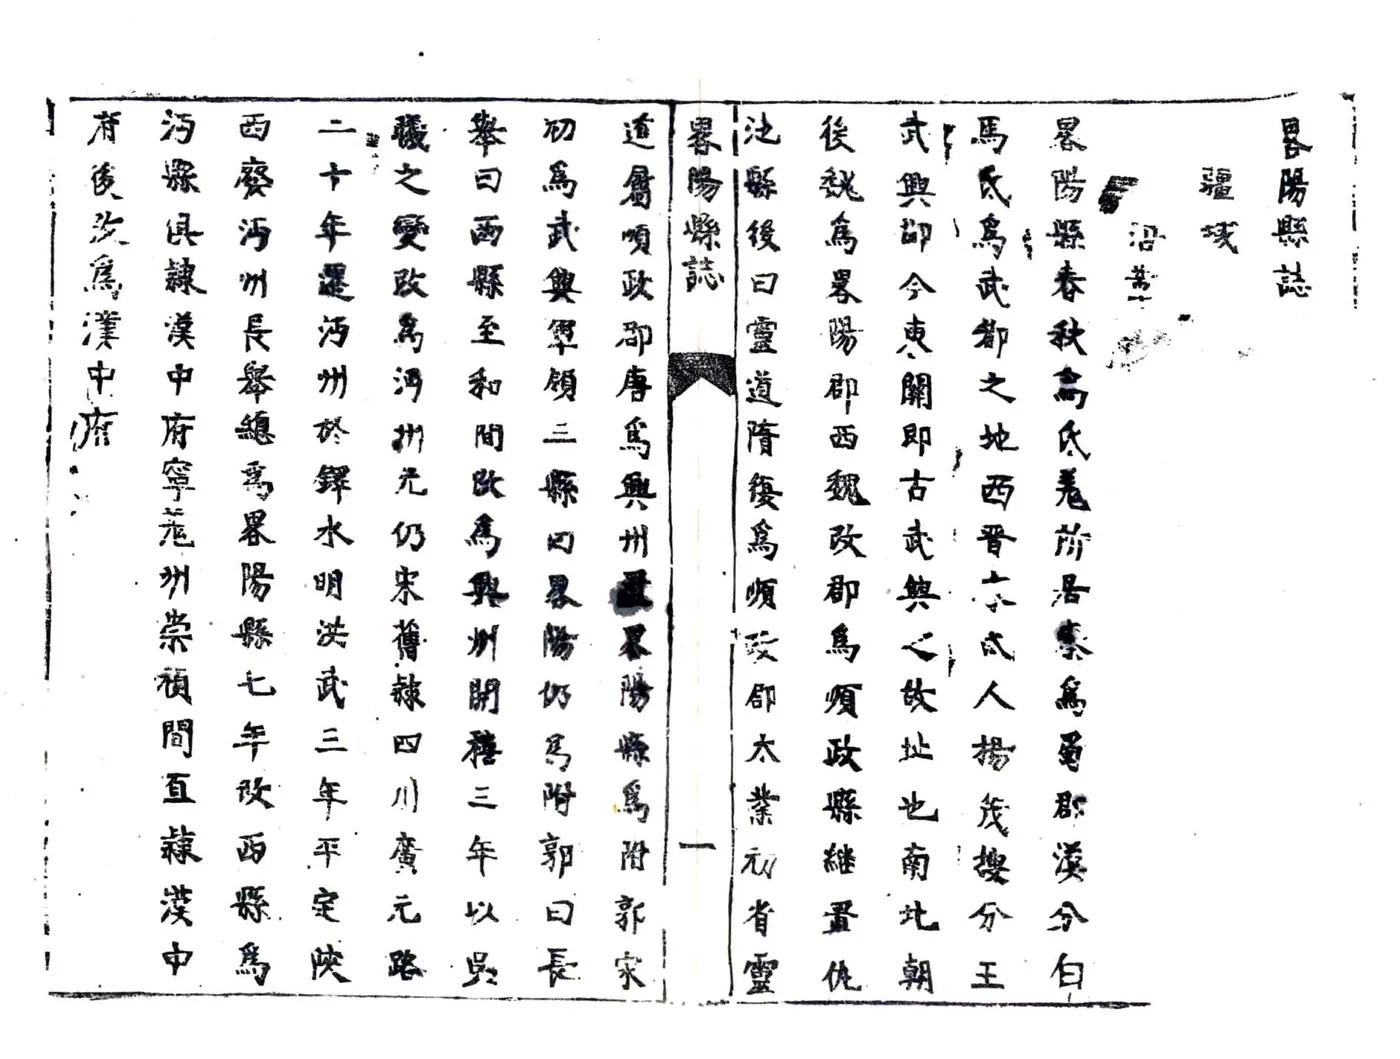 畧陽縣誌
疆域
沿革
畧陽縣春秋為氐羌所居秦為蜀郡漢分白
馬氐為武都之地西晋末氐人楊茂搜分王
武興卽今東關即古武興之故址也南北朝
後魏為畧陽郡西魏改郡為順政縣継置仇
池縣後曰靈道隋復為順政郡大業初省靈
畧陽縣誌
一
道屬順政郡唐為興州置畧陽縣為附郭宋
初為武興軍領三縣曰畧陽仍為附郭曰長
舉曰西縣至和間改為興州開禧三年以吳
曦之變改為沔州元仍宋舊隸四川廣元路
二十年還沔州於鐸水明洪武三年平定陝
西廢沔州長舉總為畧陽縣七年改西縣為
沔縣俱隸漢中府寧羌州崇禎間直隸漢中
府後改為漢中府